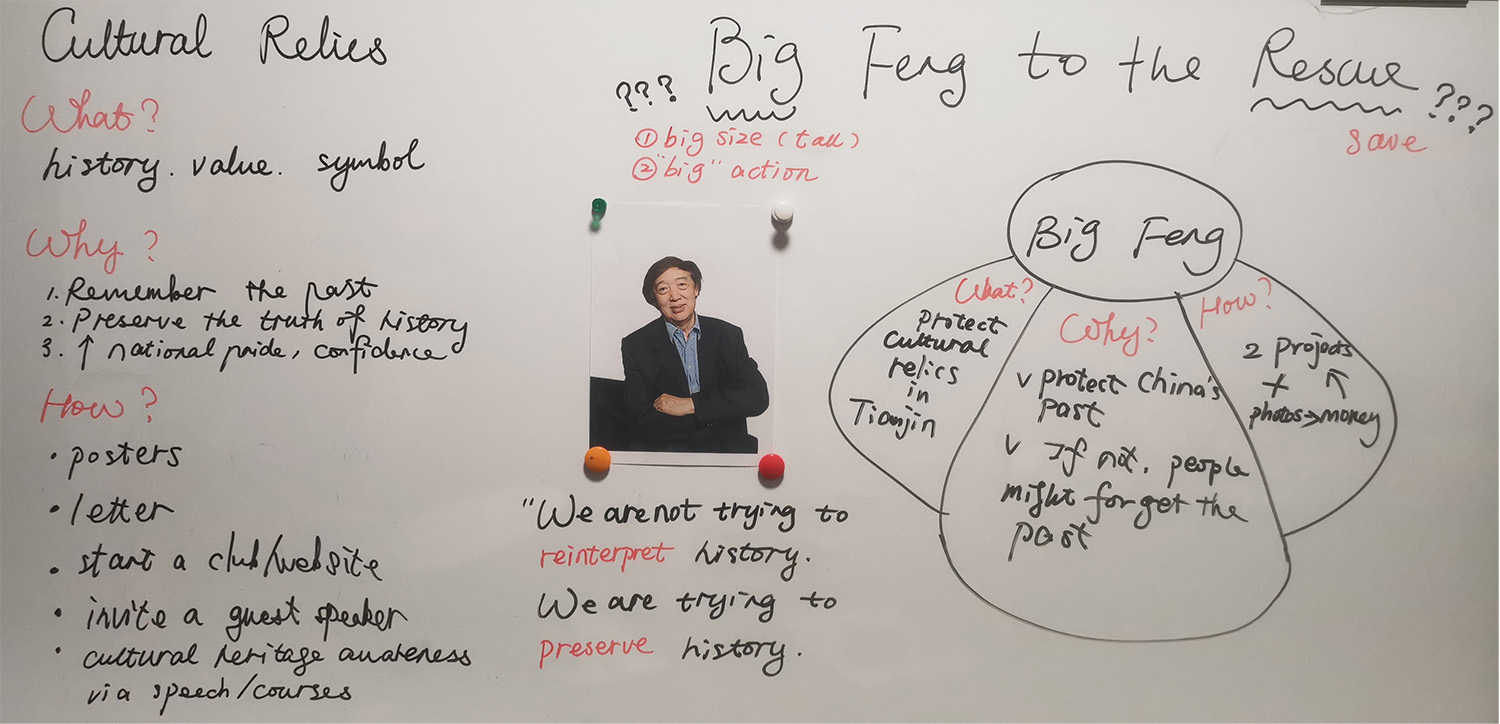 Cultural Relics
What?
history. value. symbol
Why?
1. Remember the past
2. Preserve the truth of history
3. ↑ national pride, confidence
How?
· posters
· letter
· start a club/website
· invite a guest speaker
· cultural heritage awareness
via speech/courses
??? Big Feng to the Rescue ???
① big size (tall)
② "big" action
save
"We are not trying to
reinterpret history.
We are trying to
preserve history.
Big Feng
What?
protect
cultural
relics
in
Tianjin
Why?
v protect China's
past
v If not, people
might forget the
past
How?
2 projects
+ ↖
photos→money